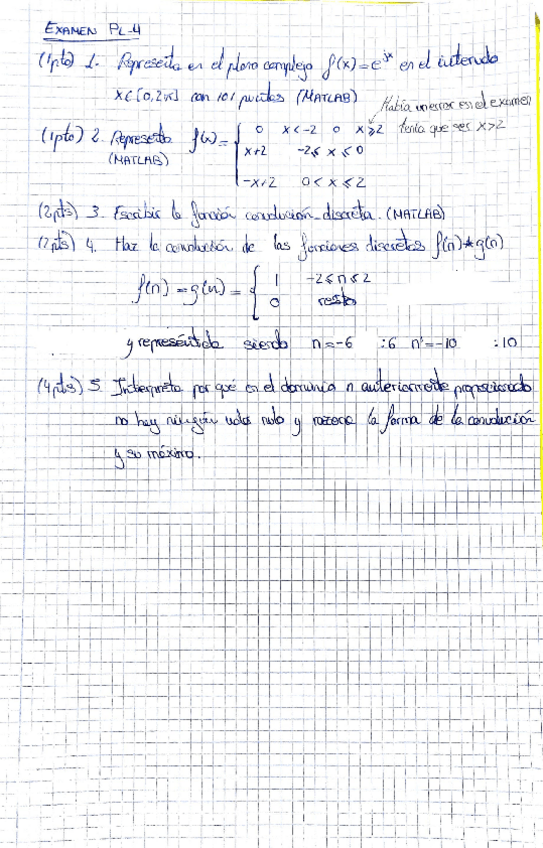 EXAMEN PL-4
(1pto) 1. Representa en el plano complejo f(x)=e^jx en el intervalo
x∈[0,2π] con 101 puntos (MATLAB)
Había un error en el examen
tenía que ser x>2
(1pto) 2. Representa f(x)= { 0 x<-2 o x≥2
(MATLAB) x+2 -2≤x≤0
-x+2 0<x≤2
(2pts) 3. Escribir la función convolución discreta. (MATLAB)
(2pts) 4. Haz la convolución de las funciones discretas f(n)*g(n)
f(n)=g(n)= { 1 -2≤n≤2
0 resto
y represéntala siendo n=-6 :6 n'=-10 :10
(4pts) 5. Interpreta por qué en el dominio n anteriormente proporcionado
no hay ningún valor nulo y razona la forma de la convolución
y su máximo.